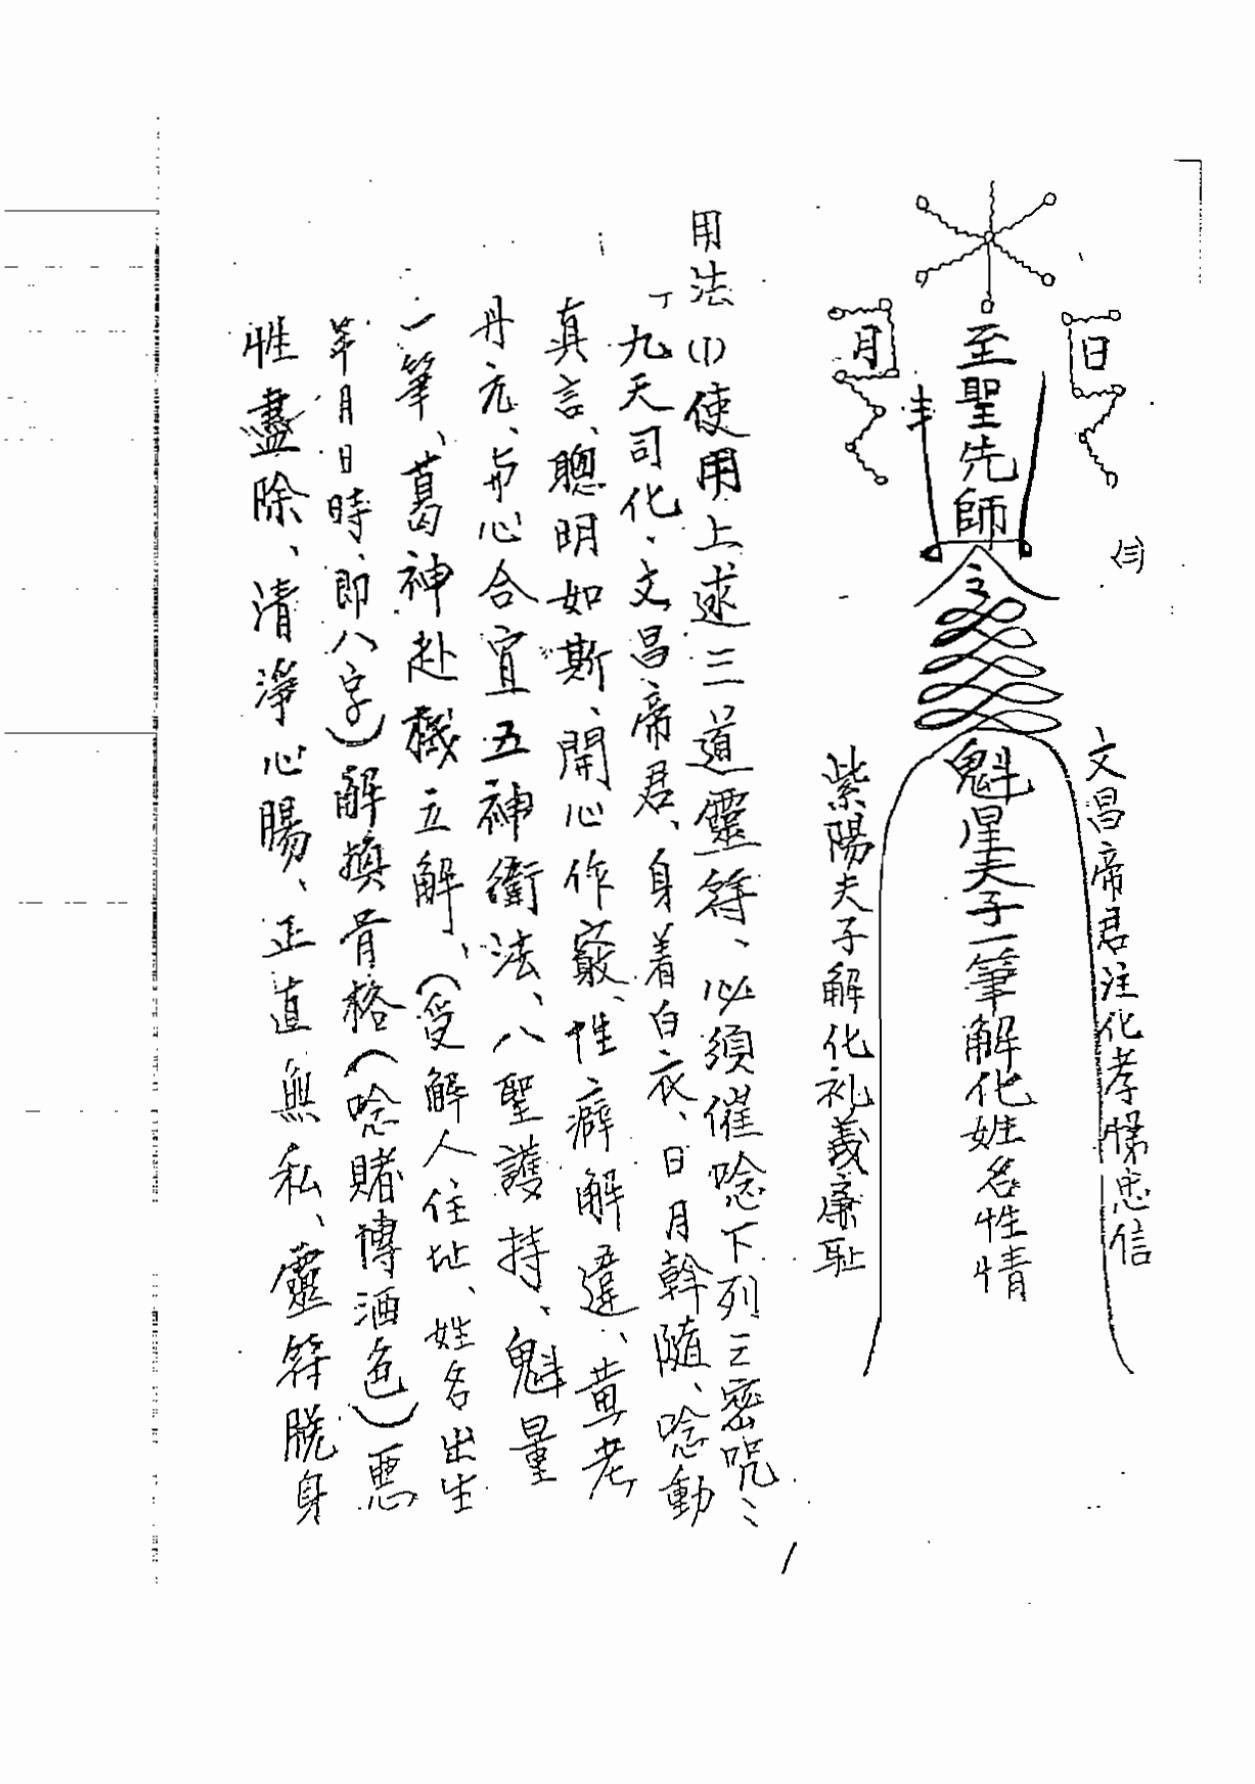 ㈢
日
月
至聖先師
令
文昌帝君注化孝悌忠信
魁星夫子一筆解化姓名性情
紫陽夫子解化礼義廉耻
用法(1)使用上述三道靈符、必須催唸下列三密咒:
「九天司化、文昌帝君、身着白衣、日月斡隨、唸動
真言、聰明如斯、開心作竅、性癖解違、黄老
丹元、与心合宜五神衛法、八聖護持、魁星
一筆、葛神赴機立解、(受解人住址、姓名出生
年月日時、即八字)解換骨格(唸賭博酒色)惡
性盡除、清淨心腸、正直無私、靈符脱身